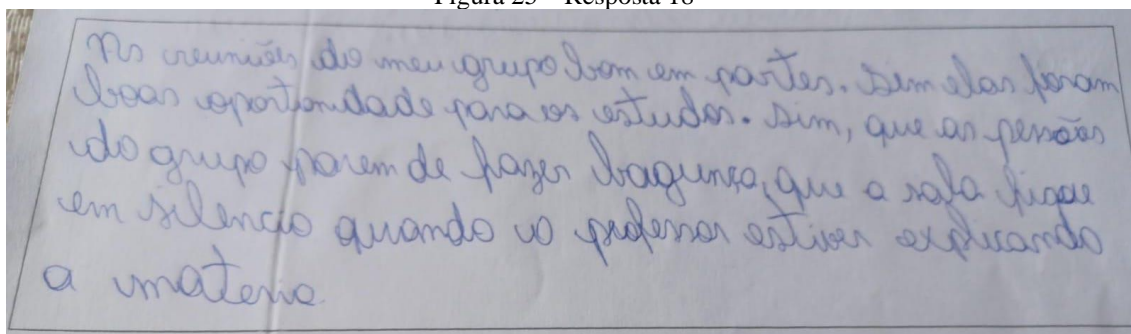 Figura 25 – Resposta 18
As reuniões do meu grupo bom em partes. Sim elas foram
boas oportundade para os estudos. Sim, que as pensoões
do grupo parem de fazer bagunça, que a sala fique
em silencio quando o professor estiver explicando
a materia